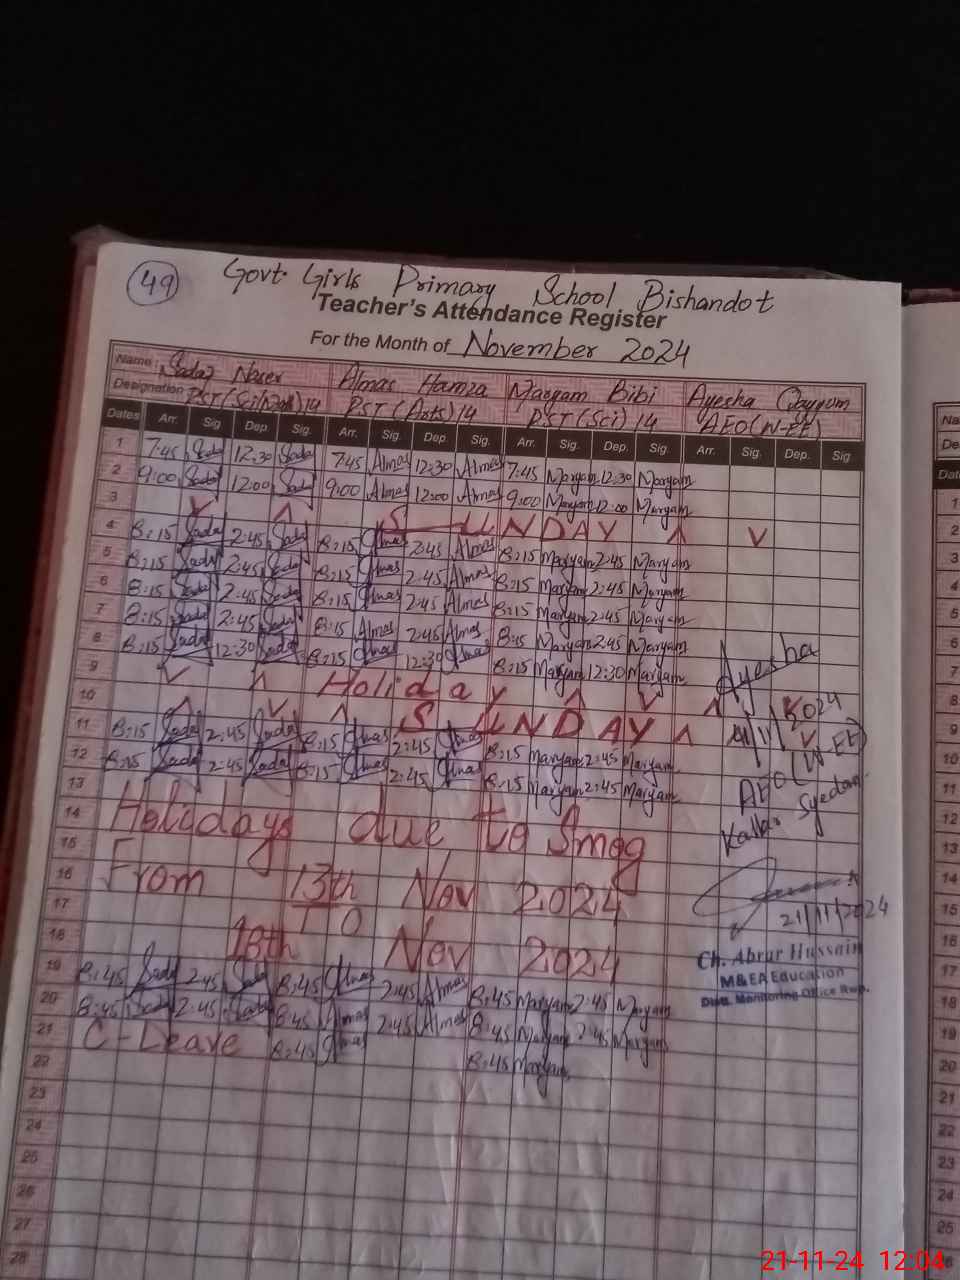 49
Govt. Girls Primary School Bishandot
Teacher's Attendance Register
For the Month of November 2024
Name: Sadaf Naser Almas Hamza Maryam Bibi Ayesha Qayyum
Designation PST (Sci/Math) 14 PST (Arts) 14 PST (Sci) 14 AEO (W-EE)
Dates Arr. Sig Dep. Sig. Arr. Sig. Dep. Sig. Arr. Sig. Dep. Sig. Arr. Sig. Dep. Sig
1 7:45 Sadaf 12:30 Sadaf 7:45 Almas 12:30 Almas 7:45 Maryam 12:30 Maryam
2 9:00 Sadaf 12:00 Sadaf 9:00 Almas 12:00 Almas 9:00 Maryam 12:00 Maryam
3 SUNDAY
4 8:15 Sadaf 2:45 Sadaf 8:15 Almas 2:45 Almas 8:15 Maryam 2:45 Maryam
5 8:15 Sadaf 2:45 Sadaf 8:15 Almas 2:45 Almas 8:15 Maryam 2:45 Maryam
6 8:15 Sadaf 2:45 Sadaf 8:15 Almas 2:45 Almas 8:15 Maryam 2:45 Maryam
7 8:15 Sadaf 2:45 Sadaf 8:15 Almas 2:45 Almas 8:15 Maryam 2:45 Maryam
8 8:15 Sadaf 12:30 Sadaf 8:15 Almas 12:30 Almas 8:15 Maryam 12:30 Maryam
9 Holiday
10 SUNDAY
11 8:15 Sadaf 2:45 Sadaf 8:15 Almas 2:45 Almas 8:15 Maryam 2:45 Maryam
12 8:15 Sadaf 2:45 Sadaf 8:15 Almas 2:45 Almas 8:15 Maryam 2:45 Maryam
13
14 Holidays due to Smog
15
16 From 13th Nov 2024
17 TO
18 18th Nov 2024
19 8:45 Sadaf 2:45 Sadaf 8:45 Almas 2:45 Almas 8:45 Maryam 2:45 Maryam
20 8:45 Sadaf 2:45 Sadaf 8:45 Almas 2:45 Almas 8:45 Maryam 2:45 Maryam
21 C-Leave 8:45 Almas 8:45 Maryam
22
23
24
25
26
27
28
Ayesha
11/2024
AEO (W-EE)
Kallar Syedan
21/11/2024
Ch. Abrar Hussain
M&EA Education
Distt. Monitoring Office Rwp.
Date
1
2
3
4
5
6
7
8
9
10
11
12
13
14
15
16
17
18
19
20
21
22
23
24
25
21-11-24 12:04